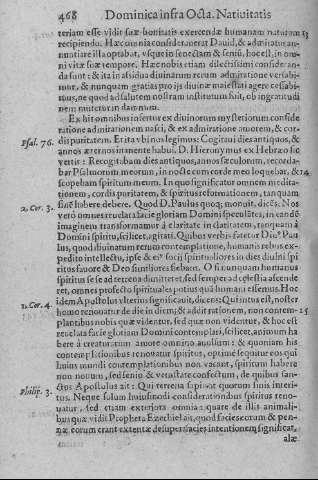 468 Dominica infra Octa. Natiuitatis
teriam esse vidit suæ bonitatis exercendæ humanam naturam 13
recipiendo. Hæc omnia considerauerat Dauid, & admiratus an-
nuatiare illa optabat, vsque in senectam & senium, hoc est, in om-
ni vitæ suæ tempore. Hæc nobis etiam dilectissimi consideran-
da sunt: & ita in assidua diuinarum rerum admiratione versabi-
mur, & nunquam gratias pro ijs diuinæ maiestati agere cessabi-
mus, ne quod ad salutem nostram institutum fuit, ob ingratitudi
nem mutetur in damnum.
Ex his omnibus infertur ex diuinorum mysteriorum conside
ratione admirationem nasci, & ex admiratione amorem, & cor-
Psal. 76. dis puritatem. Et ita vbi nos legimus: Cogitaui dies antiquos, &
annos æternos in mente habui. D. Hieronymus ex Hebræo sic
vertit: Recogitabam dies antiquos, annos sæculorum, recorda-
bar Psalmorum meorum, in nocte cum corde meo loquebar, & 14
scopebam spiritum meum. In quo significat omnem medita-
tionem, cordis puritatem, & spiritus reformationem, tanquam
2. Cor. 3. finē habere debere. Quod D. Paulus quoq; monuit, dicēs: Nos
verò omnes reuelata facie gloriam Domini speculātes, in eandē
imaginem transformamur à claritate in claritatem, tanquam à
Domini spiritu, scilicet, agitati. Quibus verbis fatetur Diuꝰ Pau
lus, quod diuinarum rerum contemplatione, humanis rebus ex-
pedito intellectu, ipse & eiꝰ socij spiritualiores in dies diuini spi
ritus fauore & Deo similiores fiebant. O si nunquam humanus
spiritus se se ad terrena dimitteret, sed semper ad cælestia ascende
ret, omnes profectò spirituales potius quā humani essemus. Hoc
2. Cor. 4. idem Apostolus vlterius significauit, dicens: Qui intus est, noster
homo renouatur de die in diem; & addit rationem, non contem- 15
plantibus nobis quæ videntur, sed quæ non videntur, & hoc est
reuelata facie gloriam Domini contemplari, scilicet, animum ha
bere à creaturarum amore omnino auulsum: & quoniam his
contemplationibus renouatur spiritus, optimè sequitur eos qui
huius mundi contemplationibus non vacant, spiritum habere
non nouum, sed senio & vetustate confectum, de quibus san-
Philip. 3. ctus Apostolus ait: Qui terrena sapiunt quorum finis interi-
tus. Neque solum huiusmodi considerationibus spiritus reno-
uatur, sed etiam exteriora omnia: quare de illis animali-
bus quæ vidit Propheta Ezechiel ait, quod facies eorum & pen-
næ eorum erant extentæ desuper facies intentionem significat,
alæ